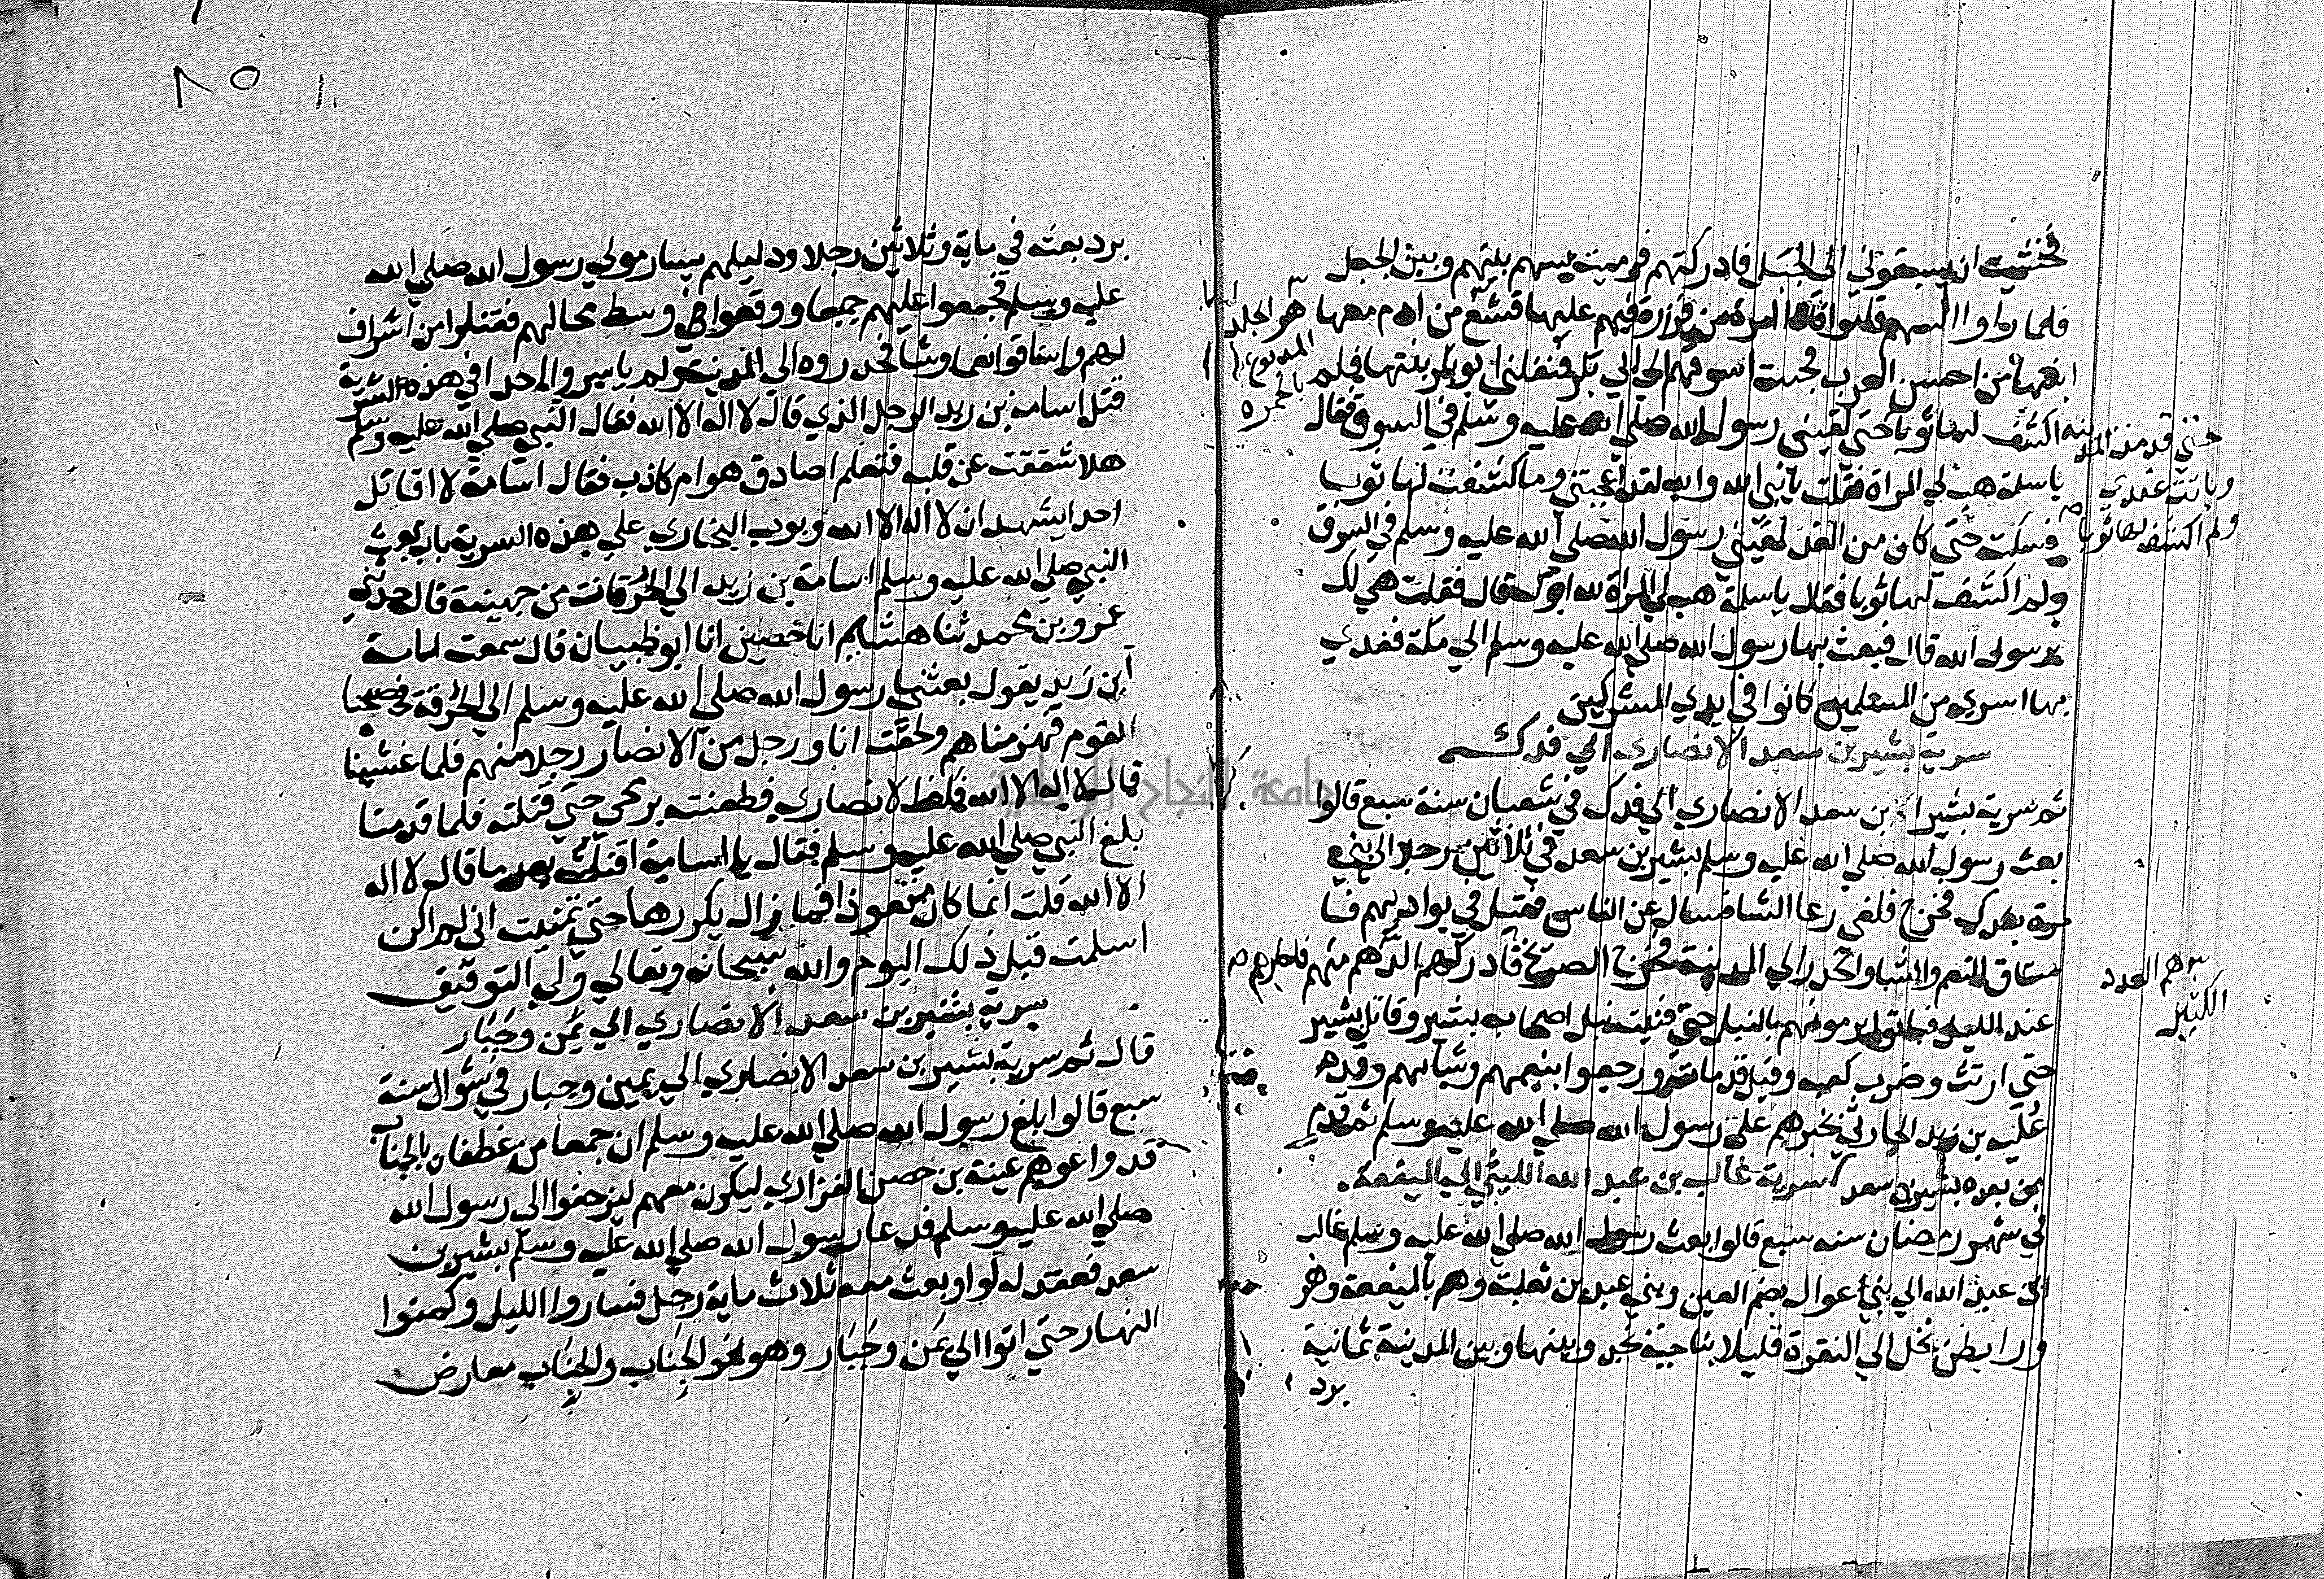 فخشيت ان يسبقوني الي الجبل فادركتهم فرميت بسهم بينهم وبين الجبل
فلما راوا السهم قاموا فاذا امراة من فزارة فيهم عليها قشع من ادم معها
هو الجلد
المدبوغ
بالحمره
ابنتها من احسن العرب فجيت اسوقهم الي ابي بكر فنفلني ابو بكر بنتها فلم
اكشف لها ثوبا حتي لقيني رسول الله صلي الله عليه وسلم في السوق فقال
حتي قدمت المدينه
وباتت عندي
ولم اكشف لها ثوبا
يا سلمة هب لي المراة فقلت يا نبي الله والله لقد اعجبتني وما كشفت لها ثوبا
فسكت حتي كان من الغد لقيني رسول الله صلي الله عليه وسلم في السوق
ولم اكشف لها ثوبا فقال يا سلمة هب لي المراة لله ابوك قال فقلت هي لك
يرسول الله قال فبعث بها رسول الله صلي الله عليه وسلم الي مكة ففدي
بها اسري من المسلمين كانوا في ايدي المشركين
سرية بشير بن سعد الانصاري الي فدك
ثم سرية بشير بن سعد الانصاري الي فدك في شعبان سنة سبع قالوا
بعث رسول الله صلي الله عليه وسلم بشير بن سعد في ثلاثين رجلا الي بني
مرة بفدك فخرج فلقي رعا الشا فسال عن الناس فقيل في بواديهم فا
ستاق النعم والشا وانحدر الي المدينة فخرج الصريخ فادركهم الدهم منهم
هم العدد
الكثير
عند الليل فباتوا يرمونهم بالنبل حتي فنيت نبل اصحاب بشير وقاتل بشير
حتي ارتث وضرب كعبه وقيل قد مات ورجعوا بنعمهم وشايهم وقدم
علبه بن زيد الحارثي بخبرهم علي رسول الله صلي الله عليه وسلم ثم قدم
من بعده بشير بن سعد سرية غالب بن عبد الله الليثي الي الميفعة
في شهر رمضان سنه سبع قالوا بعث رسول الله صلي الله عليه وسلم غالب
ابن عبد الله الي بني عوال بضم العين وبني عبد بن ثعلبة وهم بالميفعة وهي
ورا بطن نخل الي النقرة قليلا بناحية نجد وبينها وبين المدينة ثمانية
برد
٨٥
برد بعثه في ماية وثلاثين رجلا ودليلهم يسار مولي رسول الله صلي الله
عليه وسلم فجمعوا عليهم جميعا ووقعوا في وسط محالهم فقتلوا من اشراف
لهم واستاقوا نعما وشا فحدروه الي المدينة ولم ياسروا احدا في هذه السرية
قتل اسامة بن زيد الرجل الذي قال لا اله الا الله فقال النبي صلي الله عليه وسلم
هلا شققت عن قلبه فتعلم اصادق هو ام كاذب فقال اسامة لا اقاتل
احدا يشهد ان لا اله الا الله وبوب البخاري علي هذه السرية باب بعث
النبي صلي الله عليه وسلم اسامة بن زيد الي الحرقات من جهينة قال حدثني
عمرو بن محمد ثنا هشيم انا حصين انا ابو ظبيان قال سمعت اسامة
ابن زيد يقول بعثنا رسول الله صلي الله عليه وسلم الي الحرقة فصبحنا
القوم فهزمناهم ولحقت انا ورجل من الانصار رجلا منهم فلما غشيناه
قال لا اله الا الله فكف الانصاري فطعنته برمحي حتي قتلته فلما قدمنا
بلغ النبي صلي الله عليه وسلم فقال يا اسامة اقتلته بعد ما قال لا اله
الا الله قلت انما كان متعوذا فما زال يكررها حتي تمنيت اني لم اكن
اسلمت قبل ذلك اليوم والله سبحانه وتعالي ولي التوفيق
سرية بشير بن سعد الانصاري الي يمن وجبار
قال ثم سرية بشير بن سعد الانصاري الي يمين وجبار في شوال سنة
سبع قالوا بلغ رسول الله صلي الله عليه وسلم ان جمعا من غطفان بالجناب
قد واعدهم عينة بن حصن الفزاري ليكون معهم ليزحفوا الي رسول الله
صلي الله عليه وسلم فدعا رسول الله صلي الله عليه وسلم بشير بن
سعد فعقد له لوا وبعث معه ثلاث ماية رجل فساروا الليل وكمنوا
النهار حتي اتوا الي يمن وجبار وهو نحو الجناب والجناب معارض